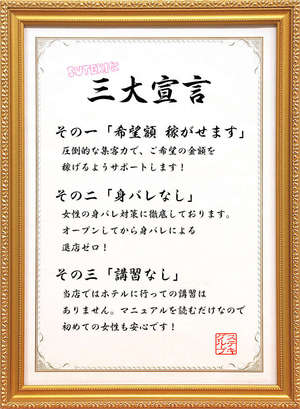 三大宣言
その一「希望額 稼がせます」
圧倒的な集客力で、ご希望の金額を
稼げるようサポートします！
その二「身バレなし」
女性の身バレ対策に徹底しております。
オープンしてから身バレによる
退店ゼロ！
その三「講習なし」
当店ではホテルに行っての講習は
ありません。マニュアルを読むだけなので
初めての女性も安心です！